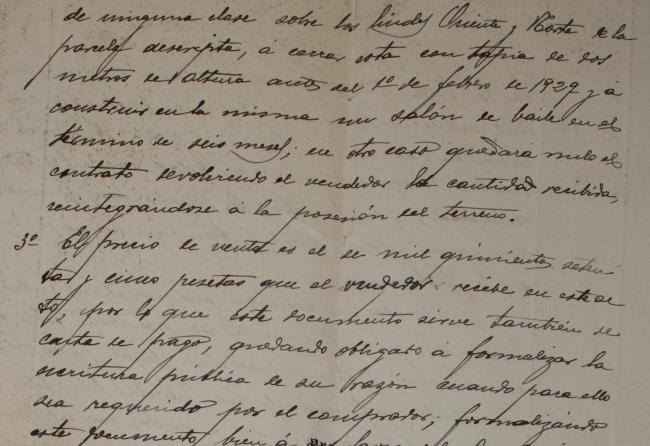 de ninguna clase sobre los lindes Oriente y Norte de la
parcela descripta, á cerrar esta con tapia de dos
metros de altura antes del 1º de febrero de 1929 y á
construir en la misma un salón de baile en el
término de seis meses; en otro caso quedará nulo el
contrato devolviendo el vendedor la cantidad recibida,
reintegrándose á la posesión del terreno.
3º El precio de venta es el de mil quinientas seten
tas y cinco pesetas que el vendedor recibe en este ac
to, por lo que este documento sirve también de
carta de pago, quedando obligado á formalizar la
escritura pública de su razón cuando para ello
sea requerido por el comprador; formalizándo
este documento bien á